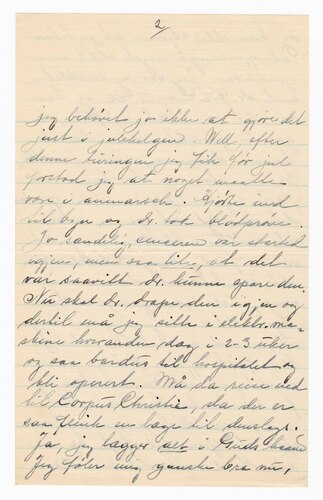 2/
jeg behövet jo ikke at gjöre det
just i julehelgen. Well, efter
denne turingen jeg fik för jul
forstod jeg at noget maatte
være i anmarsch. Kjörte ned
til byen og dr. tok blodpröve.
Jo sandelig, canceren var started
igjen, men saa lite, at det
var saavitt dr. kunne spore den.
Nu skal dr. dræpe den igjen og
dertil må jeg sitte i elektr. ma-
skine hveranden dag i 2-3 uker
og saa bardus til hospitalet og
bli operert. Må da reise ned
til Corpus Christie, da der er
saa flink en læge til denslags.
Ja, jeg lægger alt i Guds haand
Jeg föler mig ganske bra nu,